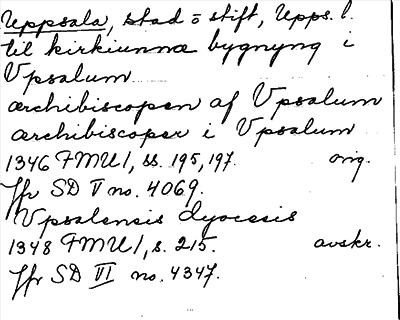 Uppsala, stad o stift, Upps. l.
til kirkiunna bygnyng i
Vpsalum
archibiscopen af Vpsalum
archibiscoper i Vpsalum
1346 FMU 1, ss. 195, 197. orig.
Jfr SD V no. 4069.
Vpsalensis dyocesis
1348 FMU 1, s. 215. avskr.
Jfr SD VI no. 4347.